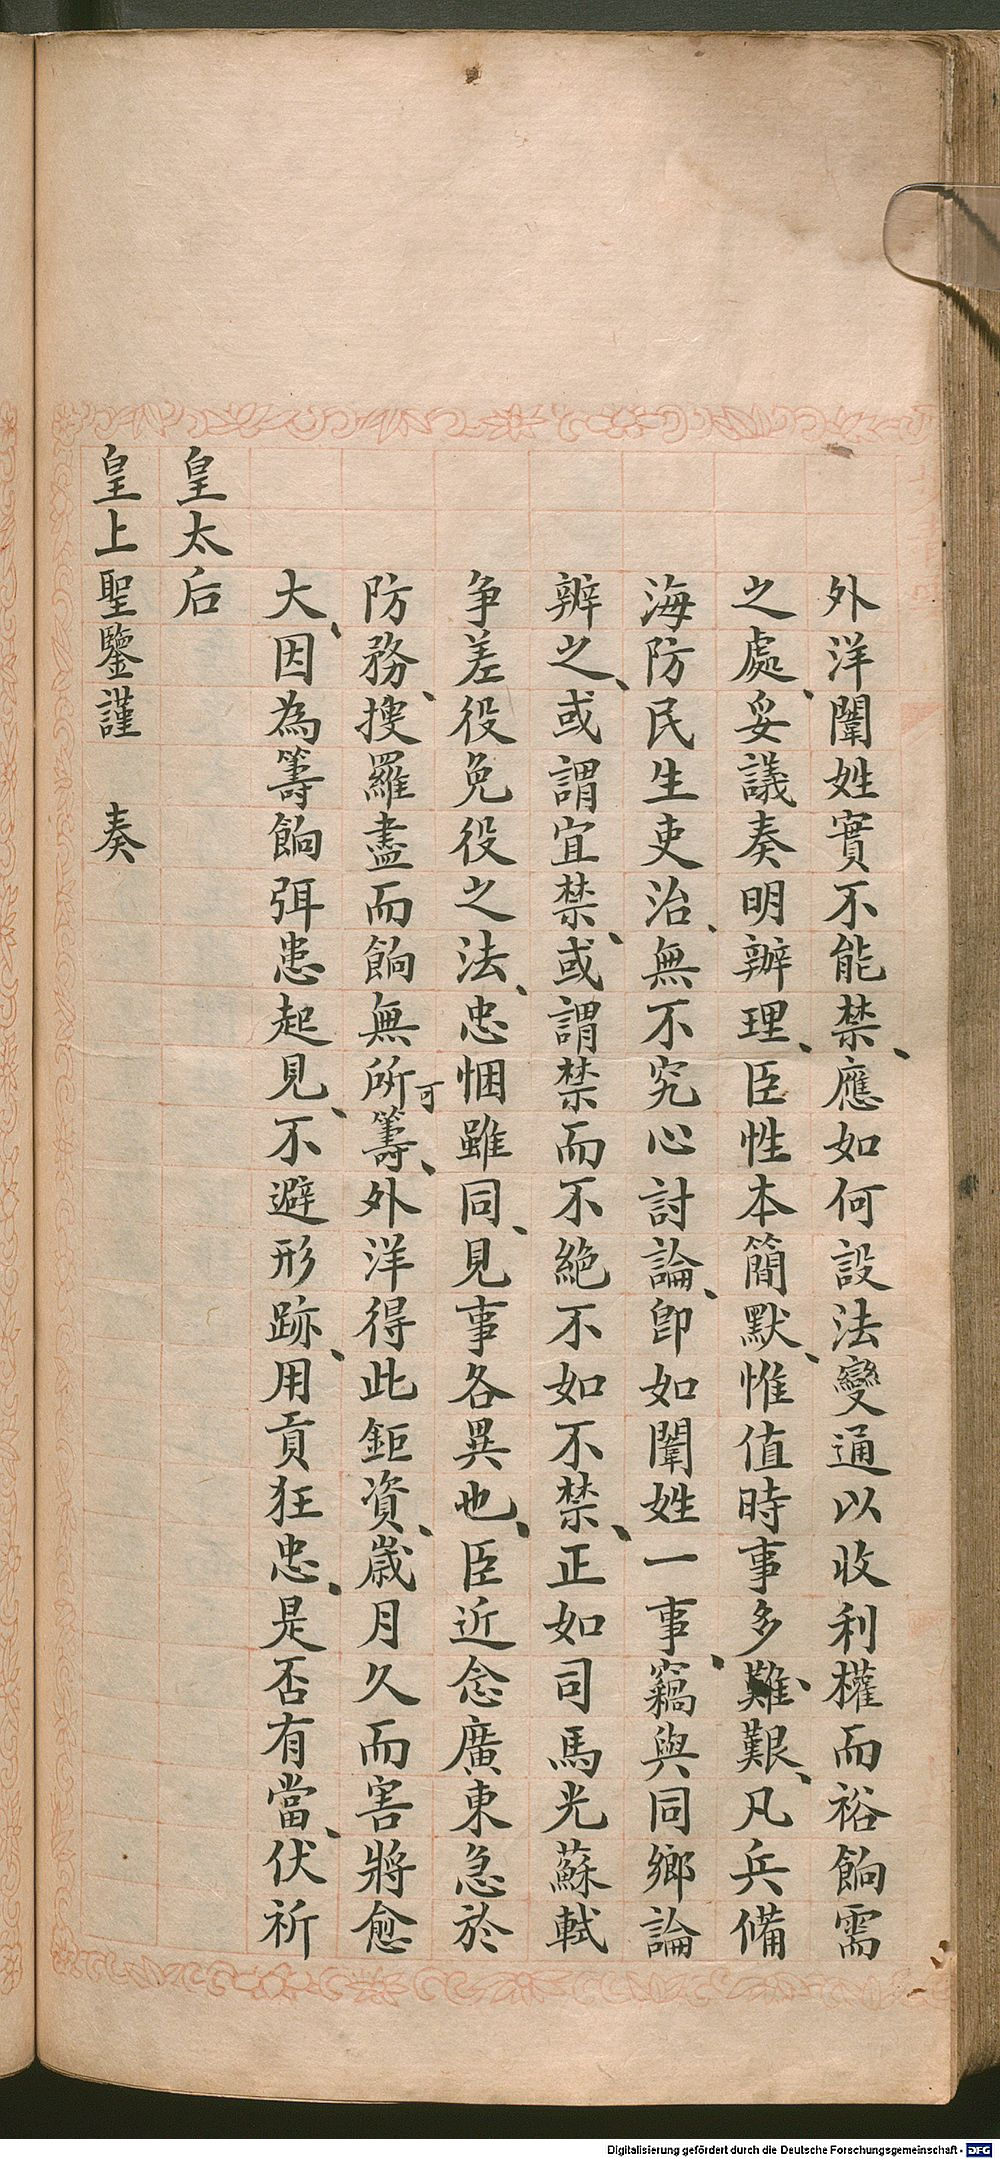 外洋闈姓實不能禁、應如何設法變通以收利權而裕餉需
之處、妥議奏明辦理、臣性本簡默、惟值時事多難、艱、凡兵備
海防民生吏治、無不究心討論、即如闈姓一事、竊與同鄉論
辨之、或謂宜禁、或謂禁而不絕不如不禁、正如司馬光蘇軾
爭差役免役之法、忠悃雖同、見事各異也、臣近念廣東急於
防務、搜羅盡而餉無所可籌、外洋得此鉅資、歲月久而害將愈
大、因為籌餉弭患起見、不避形跡、用貢狂忠、是否有當、伏祈
皇太后
皇上聖鑒謹 奏
Digitalisierung gefördert durch die Deutsche Forschungsgemeinschaft - DFG